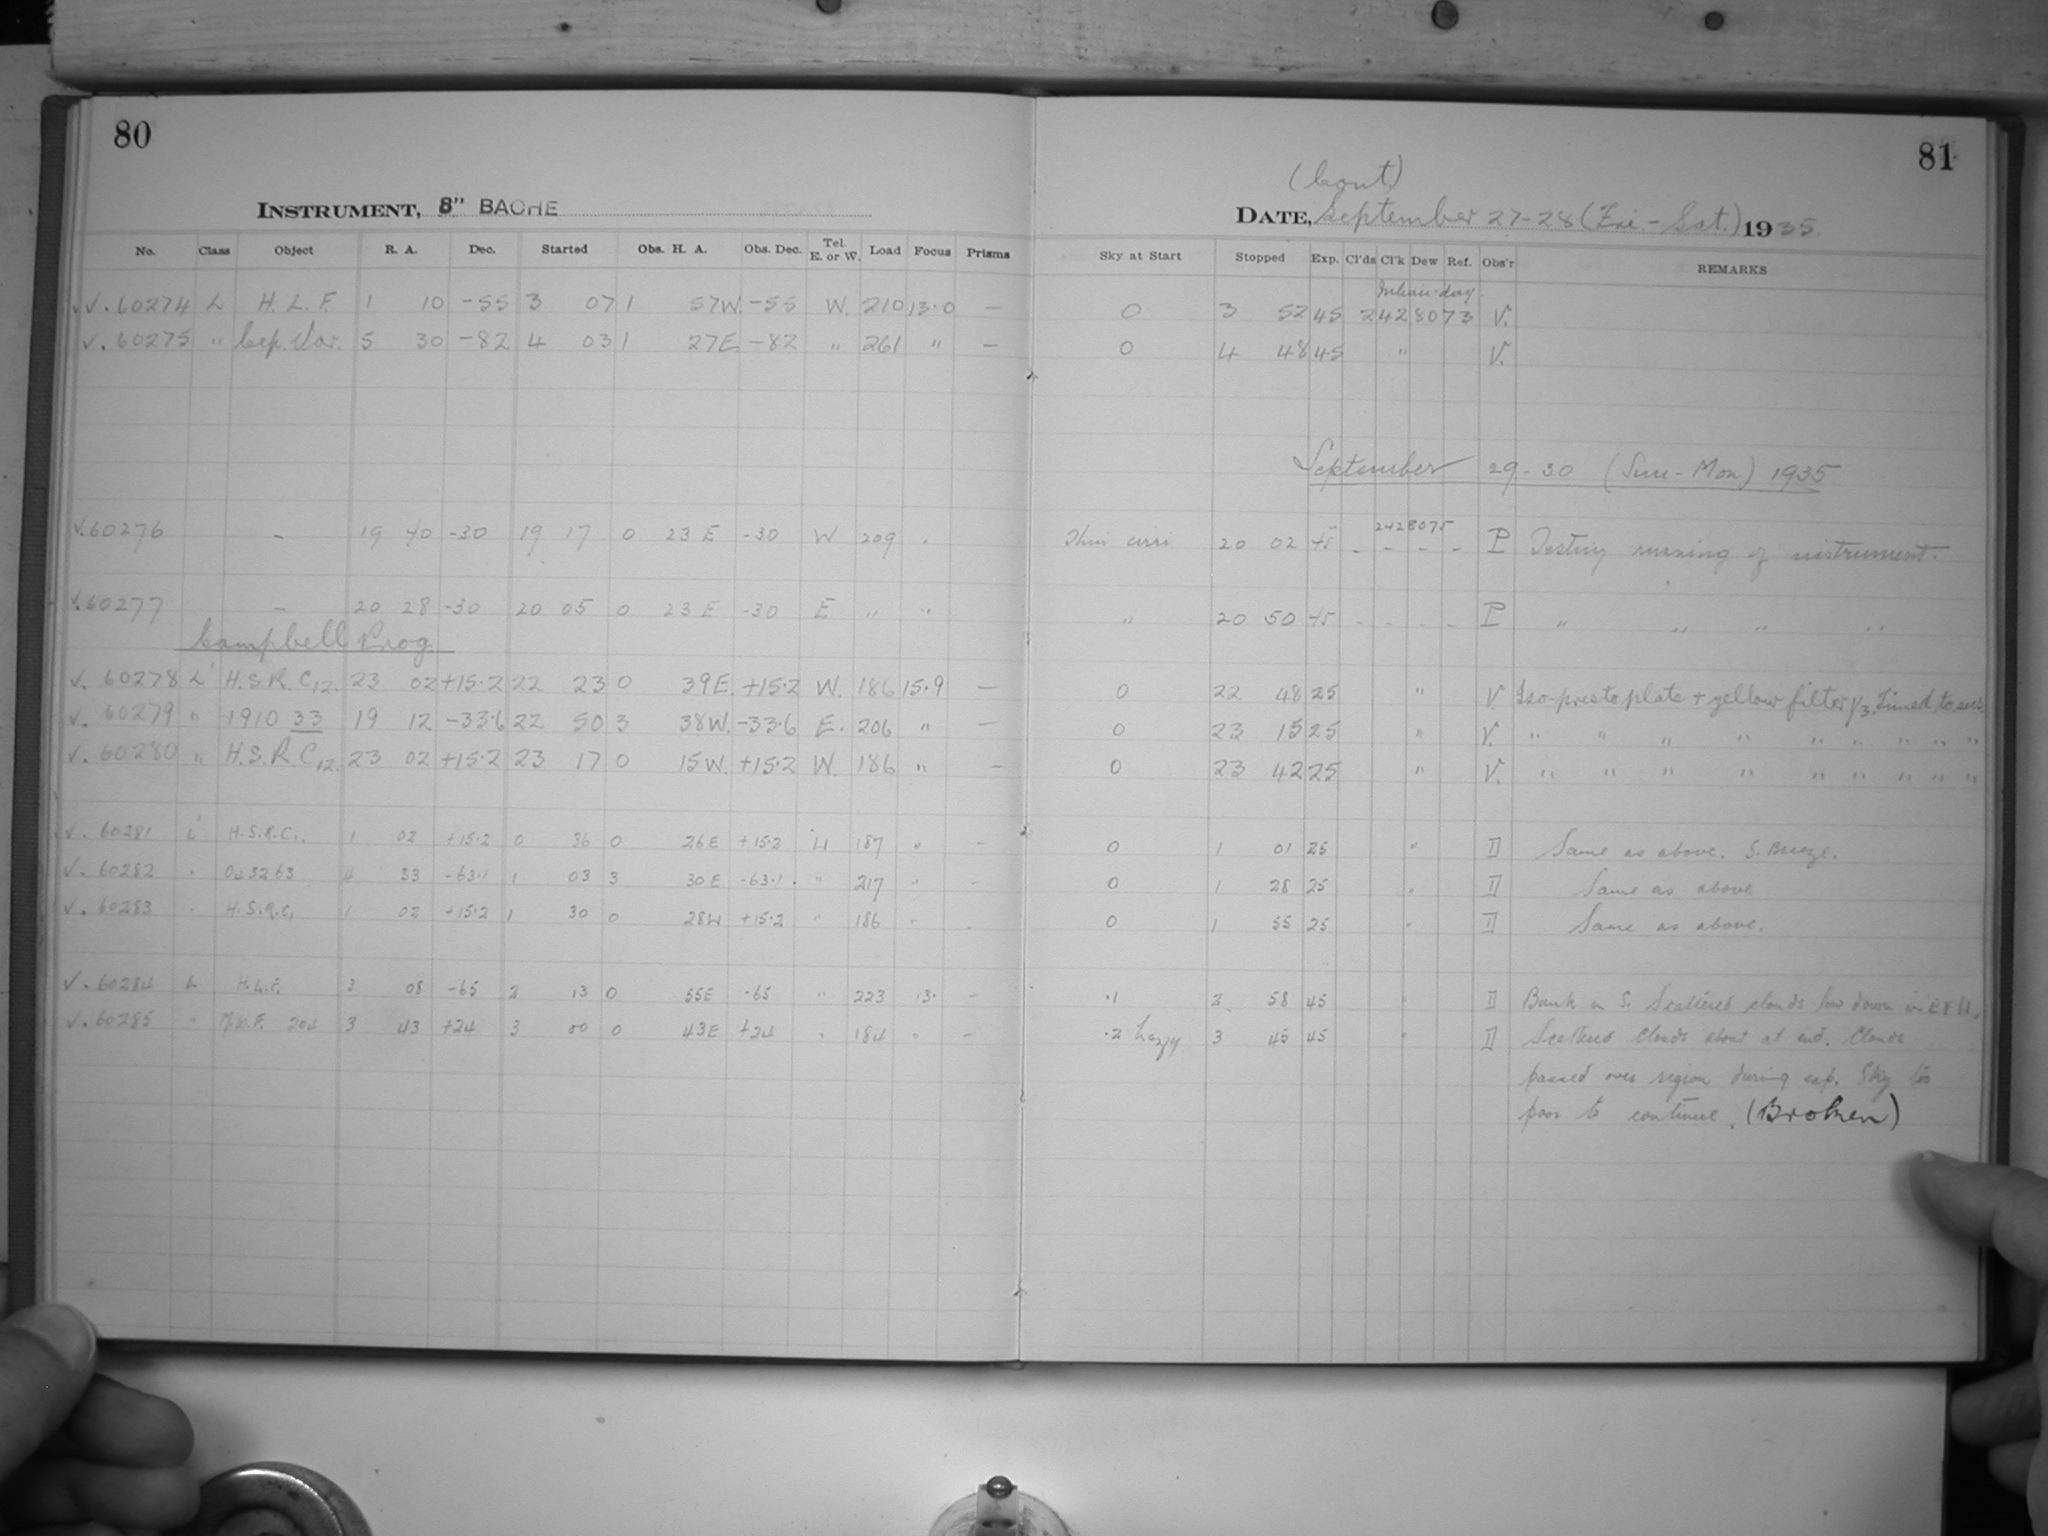 80
INSTRUMENT, 8" BACHE
No. Class Object R. A. Dec. Started Obs. H. A. Obs. Dec. Tel. E. or W. Load Focus Prisms
V. 60274 L H. L. F. 1 10 -55 3 07 1 57W. -55 W. 210 13.0 —
V. 60275 " Cep. Var. 5 30 -82 4 03 1 27E -82 " 261 " —
V. 60276 - 19 40 -30 19 17 0 23 E -30 W 209 "
V. 60277 - 20 28 -30 20 05 0 23 E -30 E " "
Campbell Prog.
V. 60278 L' H.S.R. C12. 23 02 +15.2 22 23 0 39E. +15.2 W. 186 15.9 —
V. 60279 " 1910 33 19 12 -33.6 22 50 3 38W. -33.6 E. 206 " —
V. 60280 " H.S.R. C12. 23 02 +15.2 23 17 0 15W. +15.2 W. 186 " —
V. 60281 L' H.S.R.C1. 1 02 +15.2 0 36 0 26E +15.2 W 187 " —
V. 60282 " 3263 4 33 -63.1 1 03 3 30E -63.1 " 217 " —
V. 60283 " H.S.R.C1 1 02 +15.2 1 30 0 28W +15.2 " 186 " —
V. 60284 L H.L.F. 3 08 -65 2 13 0 55E -65 " 223 13. —
V. 60285 " M.W.F. 204 3 43 +24 3 00 0 43E +24 " 184 " —
81
(Cont)
DATE, September 27-28 (Fri - Sat.) 1935.
Sky at Start Stopped Exp. Cl'ds Cl'k Dew Ref. Obs'r REMARKS
Julian day.
0 3 52 45 2428073 V.
0 4 48 45 " V.
September 29-30 (Sun - Mon) 1935
2428075
Thin cirri 20 02 45 - - - - P Testing running of instrument.
" 20 50 45 - - - - P " " " "
0 22 48 25 " V Iso-presto plate + yellow filter
0 23 15 25 " V. " " " " " " " " "
0 23 42 25 " V. " " " " " " " " "
0 1 01 25 " II Same as above. S. Breeze.
0 1 28 25 " II Same as above
0 1 55 25 " II Same as above.
.1 2 58 45 " II Bank in S. Scattered clouds low down in E + W.
.2 hazy 3 45 45 " II Scattered clouds about at end. Clouds
passed over region during exp. Sky too
poor to continue. (Broken)